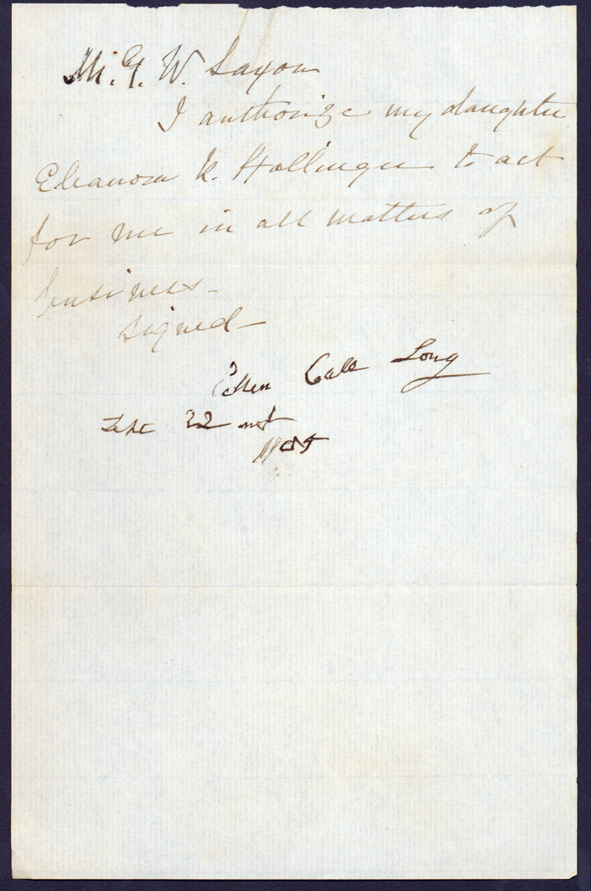 Mr. G. W. Saxon
I authorize my daughter
Eleanora K. Hollinger to act
for me in all matters of
business.
signed—
Ellen Call Long
22